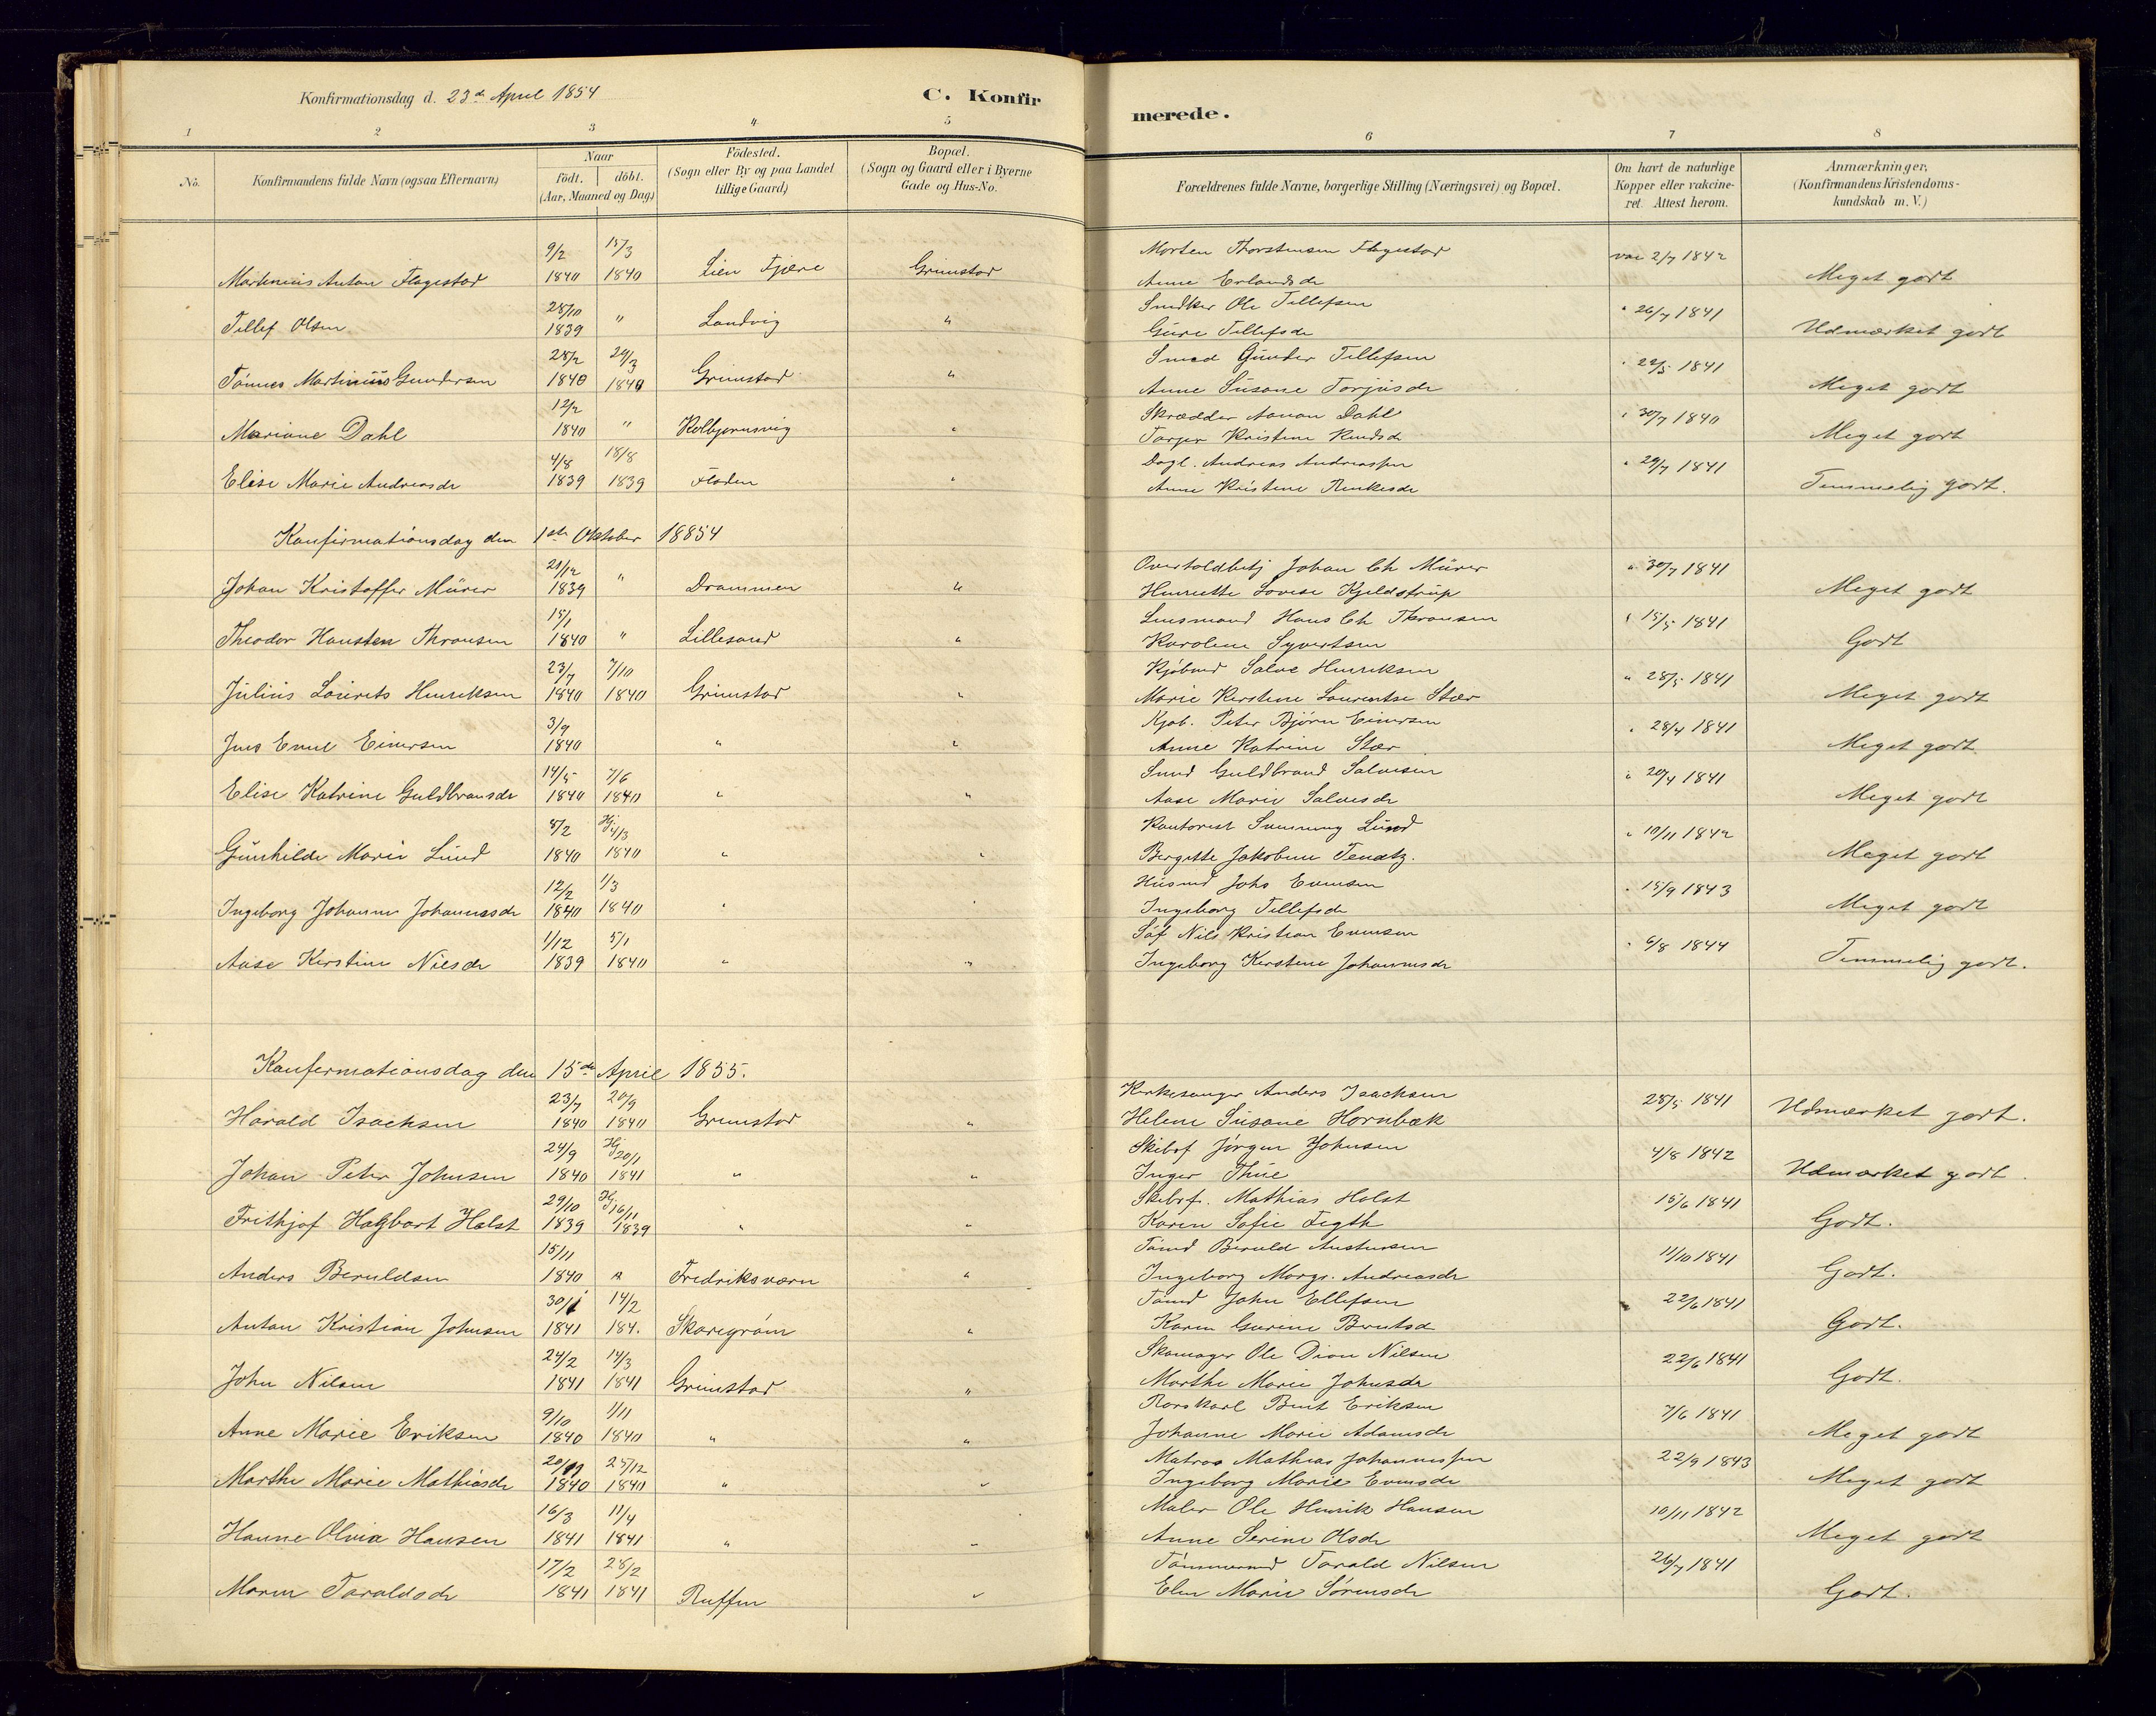 Konfirmationsdag d. 23de April 1854
C. Konfir
merede.
1 2 3 4 5 6 7 8
No.
Konfirmandens fulde Navn (ogsaa Efternavn)
Naar
födt. döbt.
(Aar, Maaned og Dag)
Födested.
(Sogn eller By og paa Landet
tillige Gaard)
Bopæl.
(Sogn og Gaard eller i Byerne
Gade og Hus-No.
Forældrenes fulde Navne, borgerlige Stilling (Næringsvei) og Bopæl.
Om havt de naturlige
Kopper eller vakcine-
ret. Attest herom.
Anmærkninger,
(Konfirmandens Kristendoms-
kundskab m. V.)
9/2 15/3 Morten Thorstensen Flagestad vac 2/7 1842
Martinius Anton Flagestad 1840 1840 Lien Fjære Grimstad Anne Erlandsdr Meget godt
28/10 Ole Tellefsen " 26/7 1841
Tellef Olsen 1839 " Landvig " Gúre Tellefsdr Udmærket godt
28/2 29/3 Smed Gúnder Tellefsen " 22/5 1841
Tönnes Martiniús Gundersen 1840 1840 Grimstad " Anne Súsane Torjúsdr Meget godt
12/2 Skrædder Aanon Dahl " 30/7 1840
Mariane Dahl 1840 " Kolbjørnsvig " Kristine Knudsdr Meget godt
4/8 18/8 Dagl. Andreas Andreassen " 29/7 1841
Elise Marie Andreasdr 1839 1839 Floden " Anne Kristine Temmelig godt.
Konfirmationsdag den 1ste Oktober 18854
21/12 Overtoldbetj Johan Ch Múrer " 30/7 1841
Johan Kristoffer Múrer 1839 " Drammen " Henriette Lovise Kjeldstrúp Meget godt
15/1 Lensmand Hans Ch Thronsen " 15/5 1841
Theodor Hansten Thronsen 1840 " Lillesand " Karoline Syvertsen Godt
23/7 7/10 Kjöbmd Salve Henriksen " 28/5 1841
Júliús Laúrits Henriksen 1840 1840 Grimstad " Marie Kerstine Laurentse Stær Meget godt
3/9 Kjøb. Peter Bjørn Einersen " 28/4 1841
Jens Emil Einersen 1840 " " Anne Katrine Stær Meget godt
14/5 7/6 Smd Guldbrand Salvesen " 20/4 1841
Elise Katrine Guldbransdr 1840 1840 " " Aase Marie Salvesdr Meget godt
8/2 Hj 4/3 Kontorist Svenning Lúnd " 10/11 1842
Gúnhilde Marie Lúnd 1840 1840 " " Bergitte Jakobine Meget godt
12/2 1/3 Húsmd Johs Evensen " 15/9 1843
Ingeborg Johanne Johannesdr 1840 1840 " " Ingeborg Tellefsdr Meget godt
1/12 5/1 Söf Nils Kristian Evensen " 6/8 1844
Aase Kerstine Nilsdr 1839 1840 " " Ingeborg Kerstine Johannesdr Temmelig godt.
Konfermationsdag den 15de April 1855.
23/7 20/9 Kirkesanger Anders Isachsen 28/5 1841
Harald Isachsen 1840 1840 Grimstad " Helene Súsane Hornbæk Udmærket godt.
24/9 Hj 20/1 Skibsf Jörgen Johnsen 4/8 1842
Johan Peter Johnsen 1840 1841 " " Inger Thúe Udmærket godt.
29/10 Hj 16/11 Skibsf. Mathias Holst 15/6 1841
Frithjof Hagbart Holst 1839 1839 " " Karen Sofie Fegth Godt.
15/11 Tömd Beruld Austensen 11/10 1841
Anders Beruldsen 1840 " Fredriksværn " Ingeborg Margr. Andreasdr Godt.
30/1 14/2 Tömd John Ellefsen 22/6 1841
Anton Kristian Johnsen 1841 184. Skaregröm " Karen Gurine Berntsd Godt.
24/2 14/3 Skomager Ole Dion Nilsen 22/6 1841
John Nilsen 1841 1841 Grimstad " Marthe Marie Johnsdr Godt.
9/10 1/11 Rorskarl Bent Eriksen 7/6 1841
Anne Marie Eriksen 1840 1840 " " Johanne Marie Adamsdr Meget godt
20/9 25/12 Matros Mathias Johannessen 22/9 1843
Marthe Marie Mathiasdr 1840 1840 " " Ingeborg Marie Evensdr Meget godt
16/3 11/4 Maler Ole Henrik Hansen 10/11 1842
Hanne Olivia Hansen 1841 1841 " " Anne Serine Olsdr Meget godt
17/2 28/2 Tömmermd Tarald Nilsen 26/7 1841
Maren Taraldsdr 1841 1841 Ruffen " Elen Marie Sörensdr Godt.